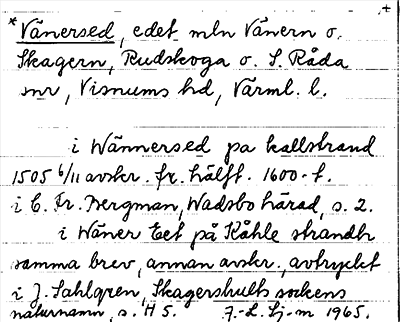 *Vänersed, edet mln Vänern o.
Skagern, Rudskoga o. S. Råda
snr, Visnums hd, Värml. l.
i Wännersed pa kallstrand
1505 6/11 avskr. fr. hälft. 1600-t.
i C. Fr. Bergman, Wadsbo härad, s. 2.
i Wäner Eet på Kåhle strandh
samma brev, annan avskr., avtryckt
i J. Sahlgren, Skagershults sockens
naturnamn, s. H 5. J.-L. Lj-m 1965.